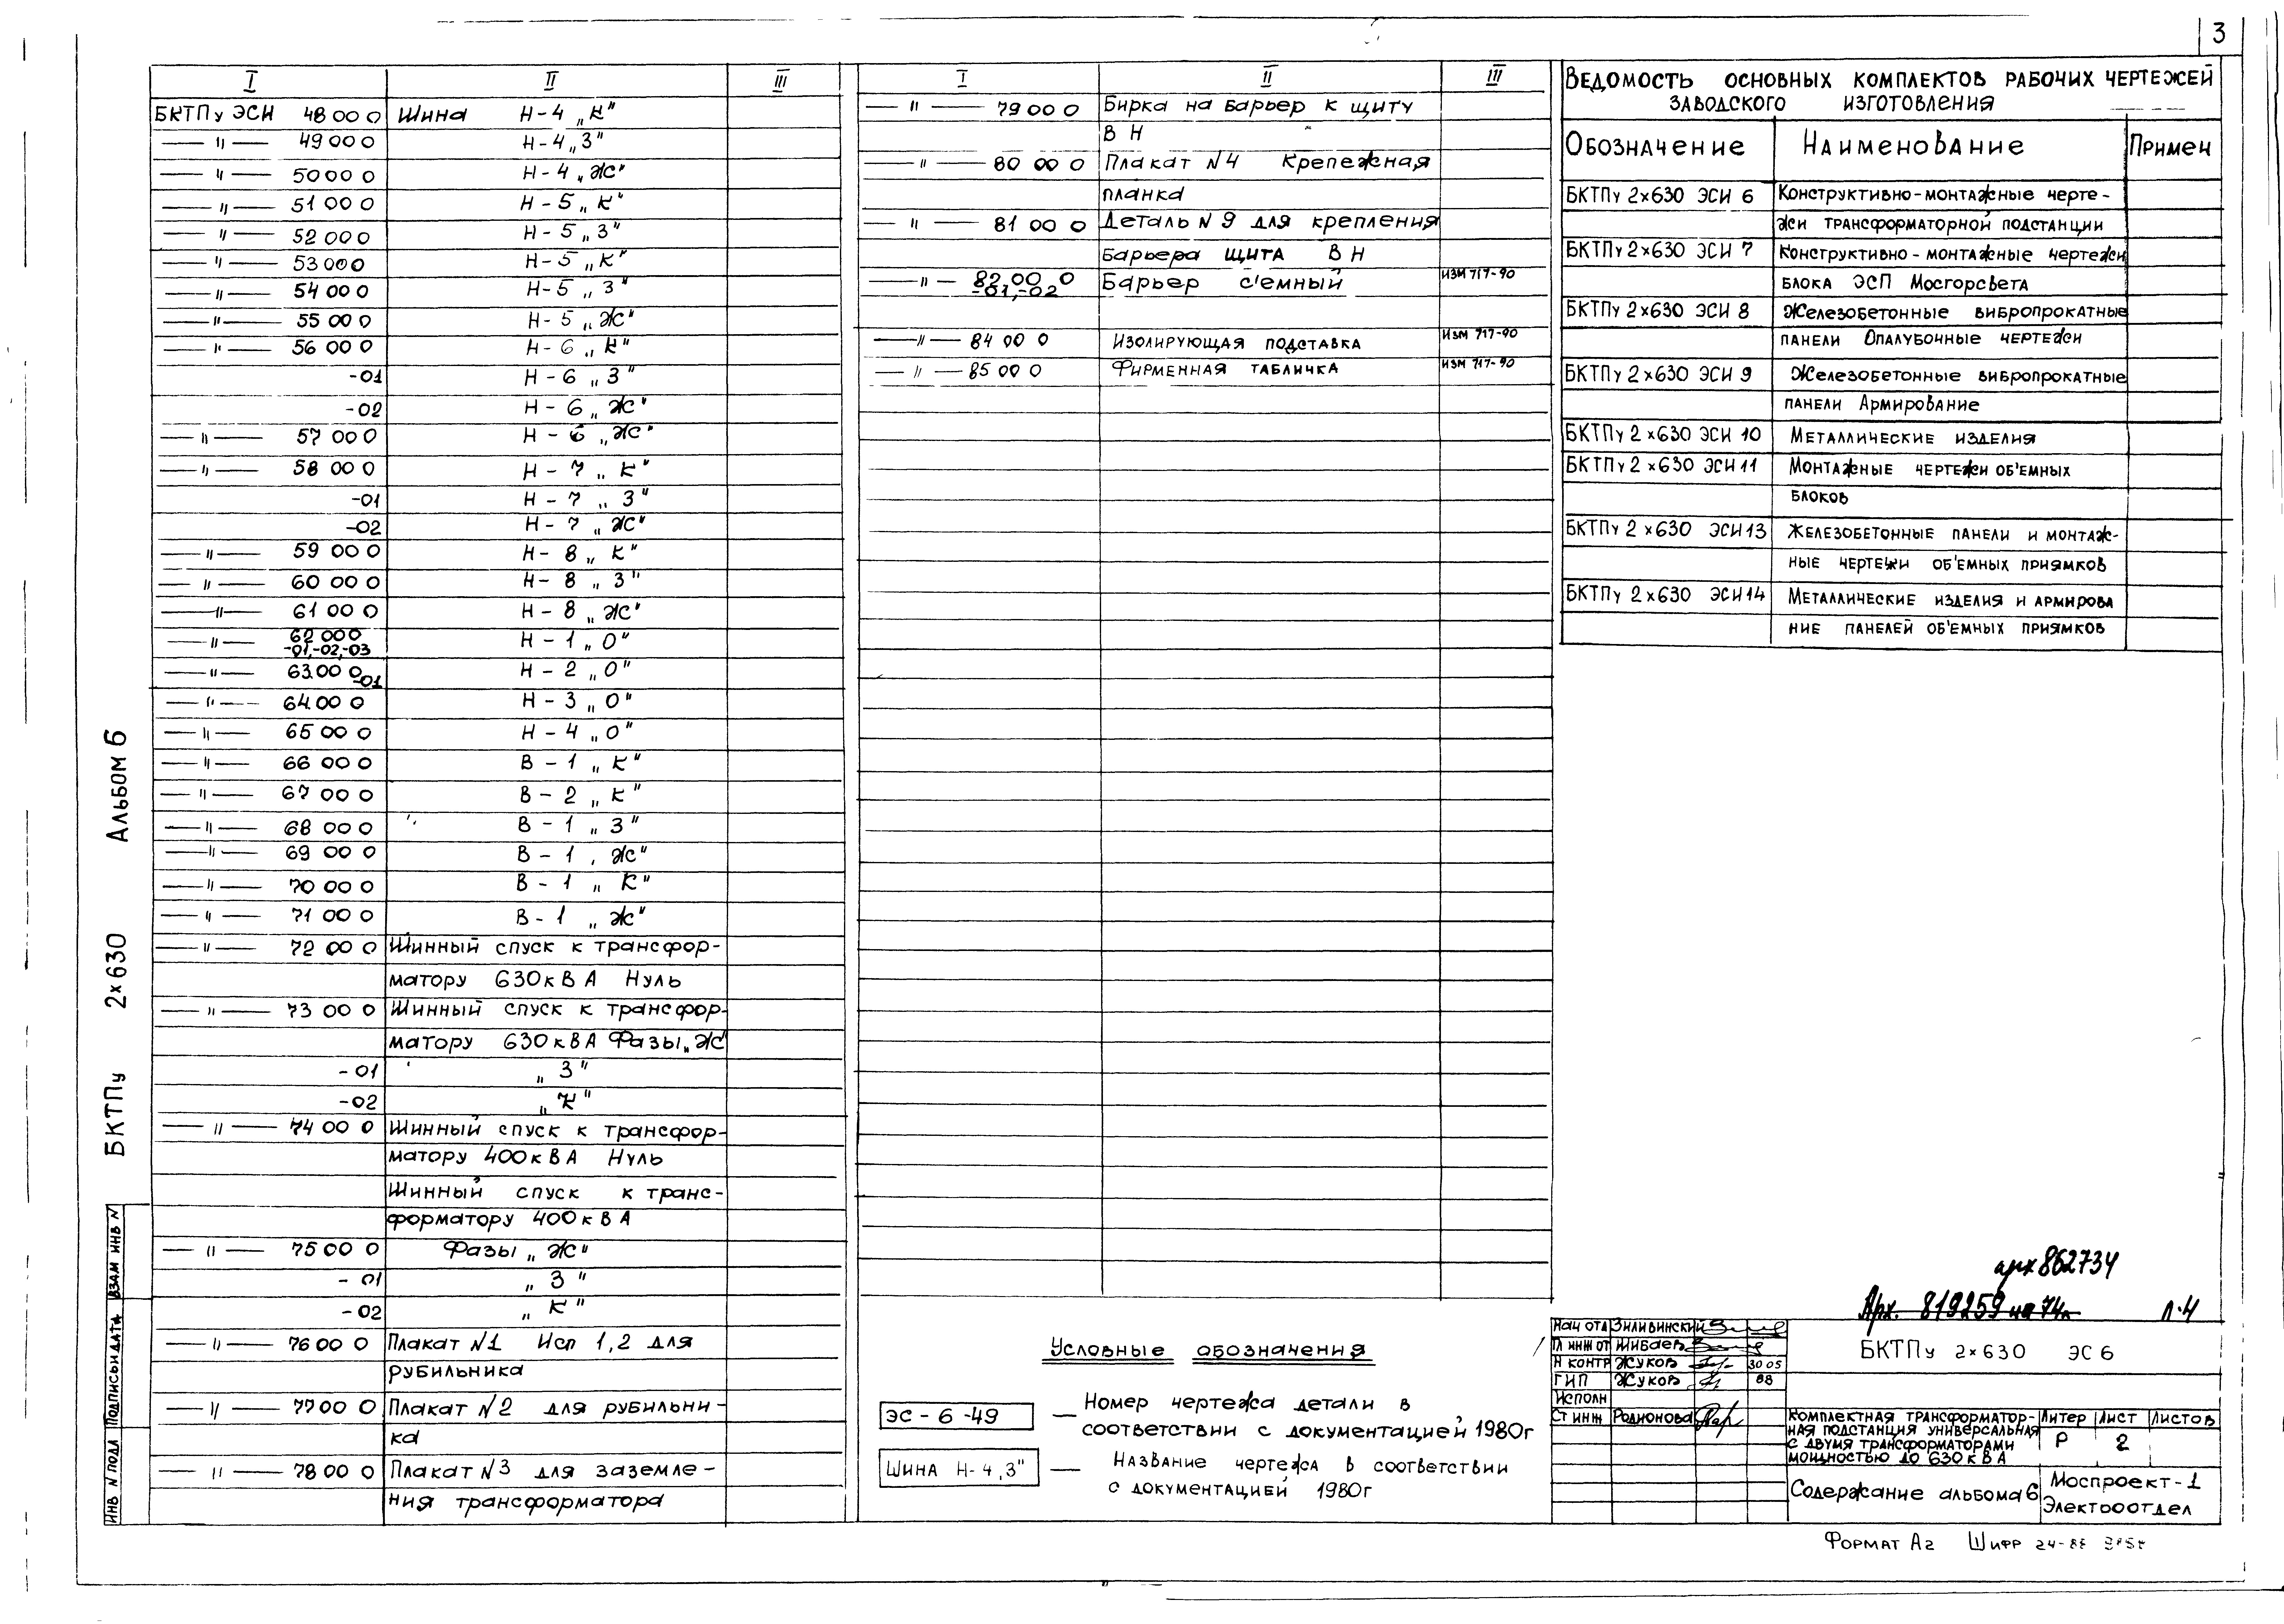 3
I II III
БКТПу ЭСИ 48 00 0 Шина Н-4 „К"
— " — 49 00 0 Н-4 „З"
— " — 50 00 0 Н-4 „Ж"
— " — 51 00 0 Н-5 „К"
— " — 52 00 0 Н-5 „З"
— " — 53 00 0 Н-5 „К"
— " — 54 00 0 Н-5 „З"
— " — 55 00 0 Н-5 „Ж"
— " — 56 00 0 Н-6 „К"
-01 Н-6 „З"
-02 Н-6 „Ж"
— " — 57 00 0 Н-6 „Ж"
— " — 58 00 0 Н-7 „К"
-01 Н-7 „З"
-02 Н-7 „Ж"
— " — 59 00 0 Н-8 „К"
— " — 60 00 0 Н-8 „З"
— " — 61 00 0 Н-8 „Ж"
— " — 62 00 0 -01,-02,-03 Н-1 „О"
— " — 63 00 0 -01 Н-2 „О"
— " — 64 00 0 Н-3 „О"
— " — 65 00 0 Н-4 „О"
— " — 66 00 0 В-1 „К"
— " — 67 00 0 В-2 „К"
— " — 68 00 0 В-1 „З"
— " — 69 00 0 В-1 „Ж"
— " — 70 00 0 В-1 „К"
— " — 71 00 0 В-1 „Ж"
— " — 72 00 0 Шинный спуск к трансфор-
матору 630кВА Нуль
— " — 73 00 0 Шинный спуск к трансфор-
матору 630кВА Фазы „Ж
-01 „З"
-02 „К"
— " — 74 00 0 Шинный спуск к трансфор-
матору 400кВА Нуль
Шинный спуск к транс-
форматору 400кВА
— " — 75 00 0 Фазы „Ж"
-01 „З"
-02 „К"
— " — 76 00 0 Плакат N1 Исп 1,2 для
рубильника
— " — 77 00 0 Плакат N2 для рубильни-
ка
— " — 78 00 0 Плакат N3 для заземле-
ния трансформатора
I II III
— " — 79 00 0 Бирка на барьер к щиту
ВН
— " — 80 00 0 Плакат N4 Крепежная
планка
— " — 81 00 0 Деталь N9 для крепления
барьера щита ВН
— " — 82 00 0 -01,-02 Барьер с'емный ИЗМ 717-90
— " — 84 00 0 Изолирующая подставка ИЗМ 717-90
— " — 85 00 0 Фирменная табличка ИЗМ 717-90
Условные обозначения
ЭС-6-49 — Номер чертежа детали в
соответствии с документацией 1980г
Шина Н-4„З" — Название чертежа в соответствии
с документацией 1980г
Ведомость основных комплектов рабочих чертежей
заводского изготовления
Обозначение Наименование Примеч
БКТПу 2×630 ЭСИ 6 Конструктивно-монтажные черте-
жи трансформаторной подстанции
БКТПу 2×630 ЭСИ 7 Конструктивно-монтажные чертежи
блока ЭСП Мосгорсвета
БКТПу 2×630 ЭСИ 8 Железобетонные вибропрокатные
панели Опалубочные чертежи
БКТПу 2×630 ЭСИ 9 Железобетонные вибропрокатные
панели Армирование
БКТПу 2×630 ЭСИ 10 Металлические изделия
БКТПу 2×630 ЭСИ 11 Монтажные чертежи об'емных
блоков
БКТПу 2×630 ЭСИ 13 Железобетонные панели и монтаж-
ные чертежи об'емных приямков
БКТПу 2×630 ЭСИ 14 Металлические изделия и армирова
ние панелей об'емных приямков
арх 862734
Арх. 819259 на 74л Л·4
Нач отд Зиливинский
Гл инж от Шибаев
Н контр Жуков 30 05
ГИП Жуков 88
Исполн
Ст инж Родионова
БКТПу 2×630 ЭС 6
Комплектная трансформатор-
ная подстанция универсальная
с двумя трансформаторами
мощностью до 630кВА
Литер Лист Листов
Р 2
Содержание альбома 6
Моспроект-1
Электроотдел
Формат А2 Шифр 24-88
БКТПу 2×630 Альбом 6
Инв N подл Подпись и дата Взам инв N